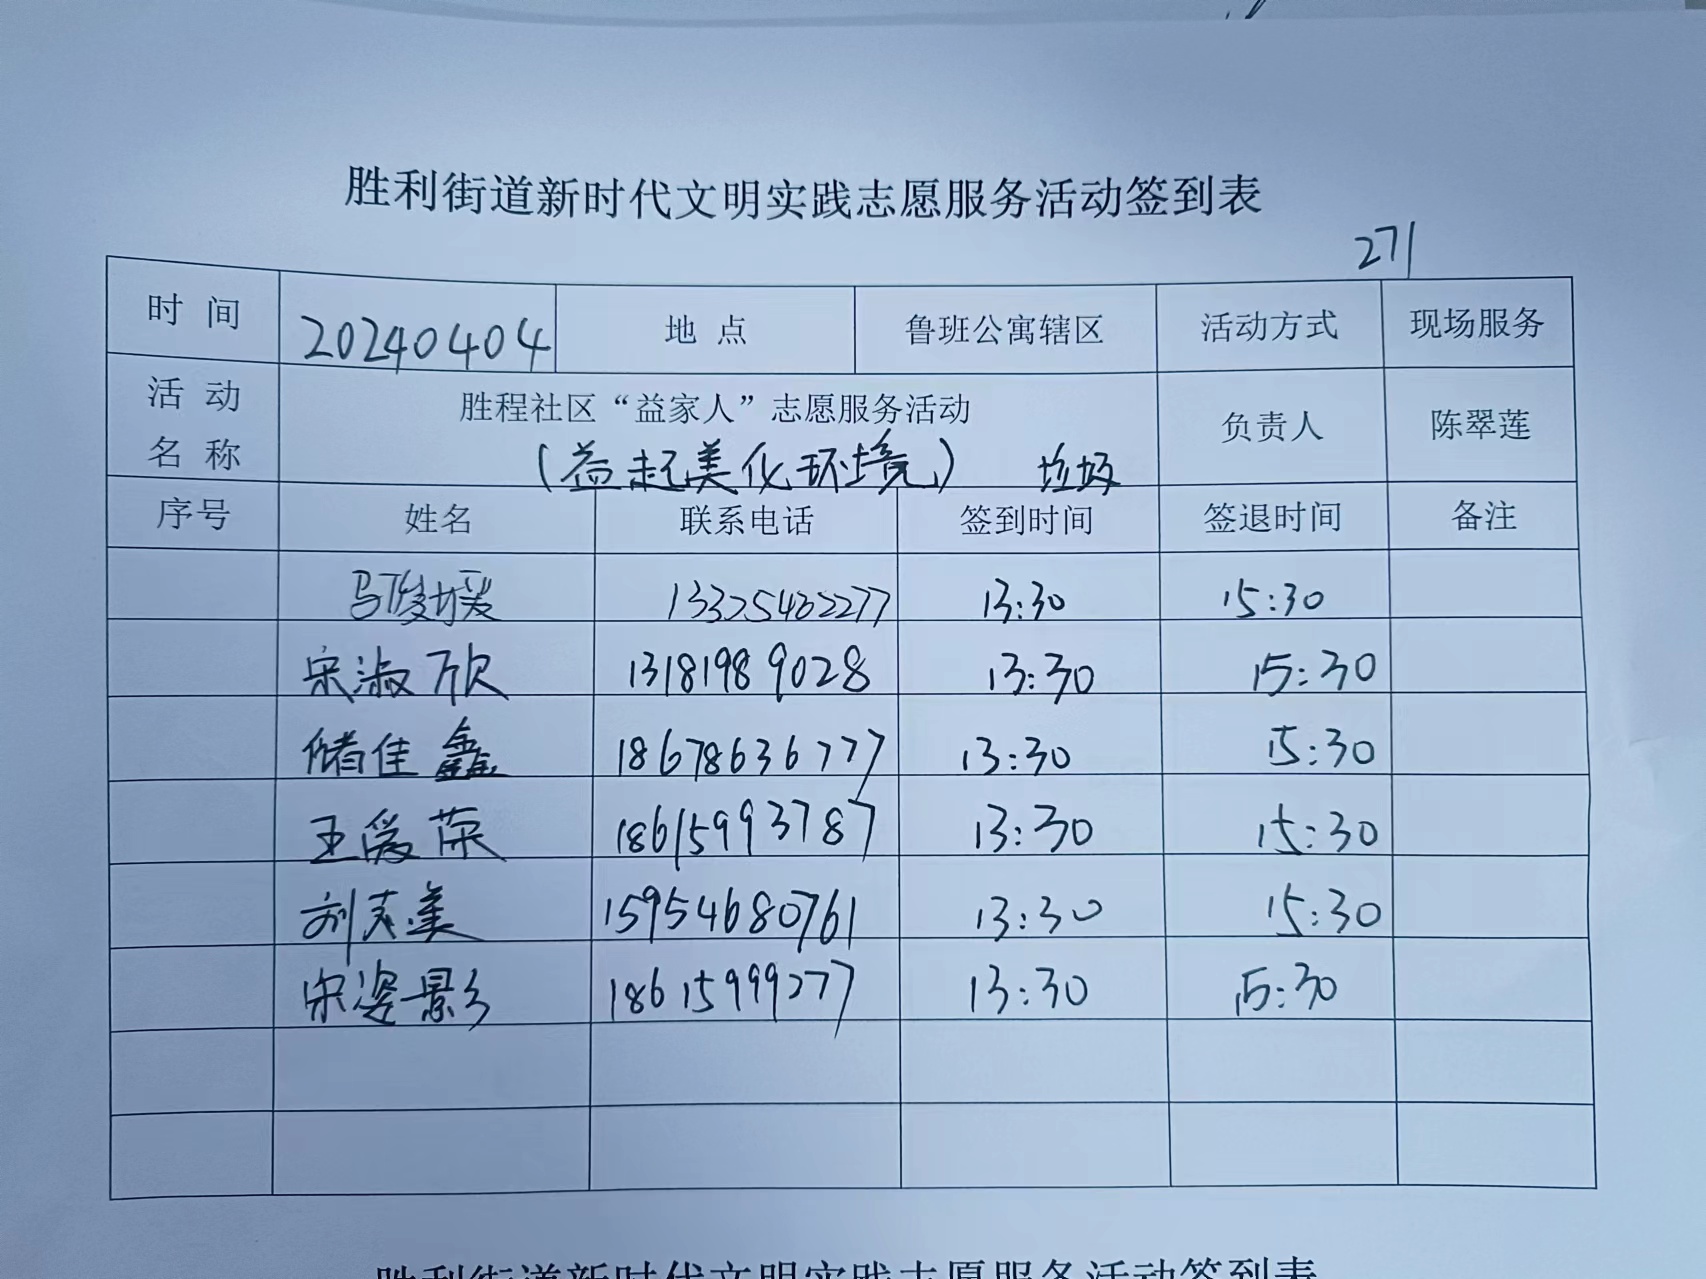 胜利街道新时代文明实践志愿服务活动签到表
271
时 间 20240404 地 点 鲁班公寓辖区 活动方式 现场服务
活 动 名 称 胜程社区“益家人”志愿服务活动 负责人 陈翠莲
(益起美化环境) 垃圾
序号 姓名 联系电话 签到时间 签退时间 备注
马俊媛 13325462277 13:30 15:30
宋淑欣 13181989028 13:30 15:30
储佳鑫 18678636777 13:30 15:30
王爱荣 18615993787 13:30 15:30
刘英美 15954680761 13:30 15:30
宋姿影 18615999277 13:30 15:30
胜利街道新时代文明实践志愿服务活动签到表